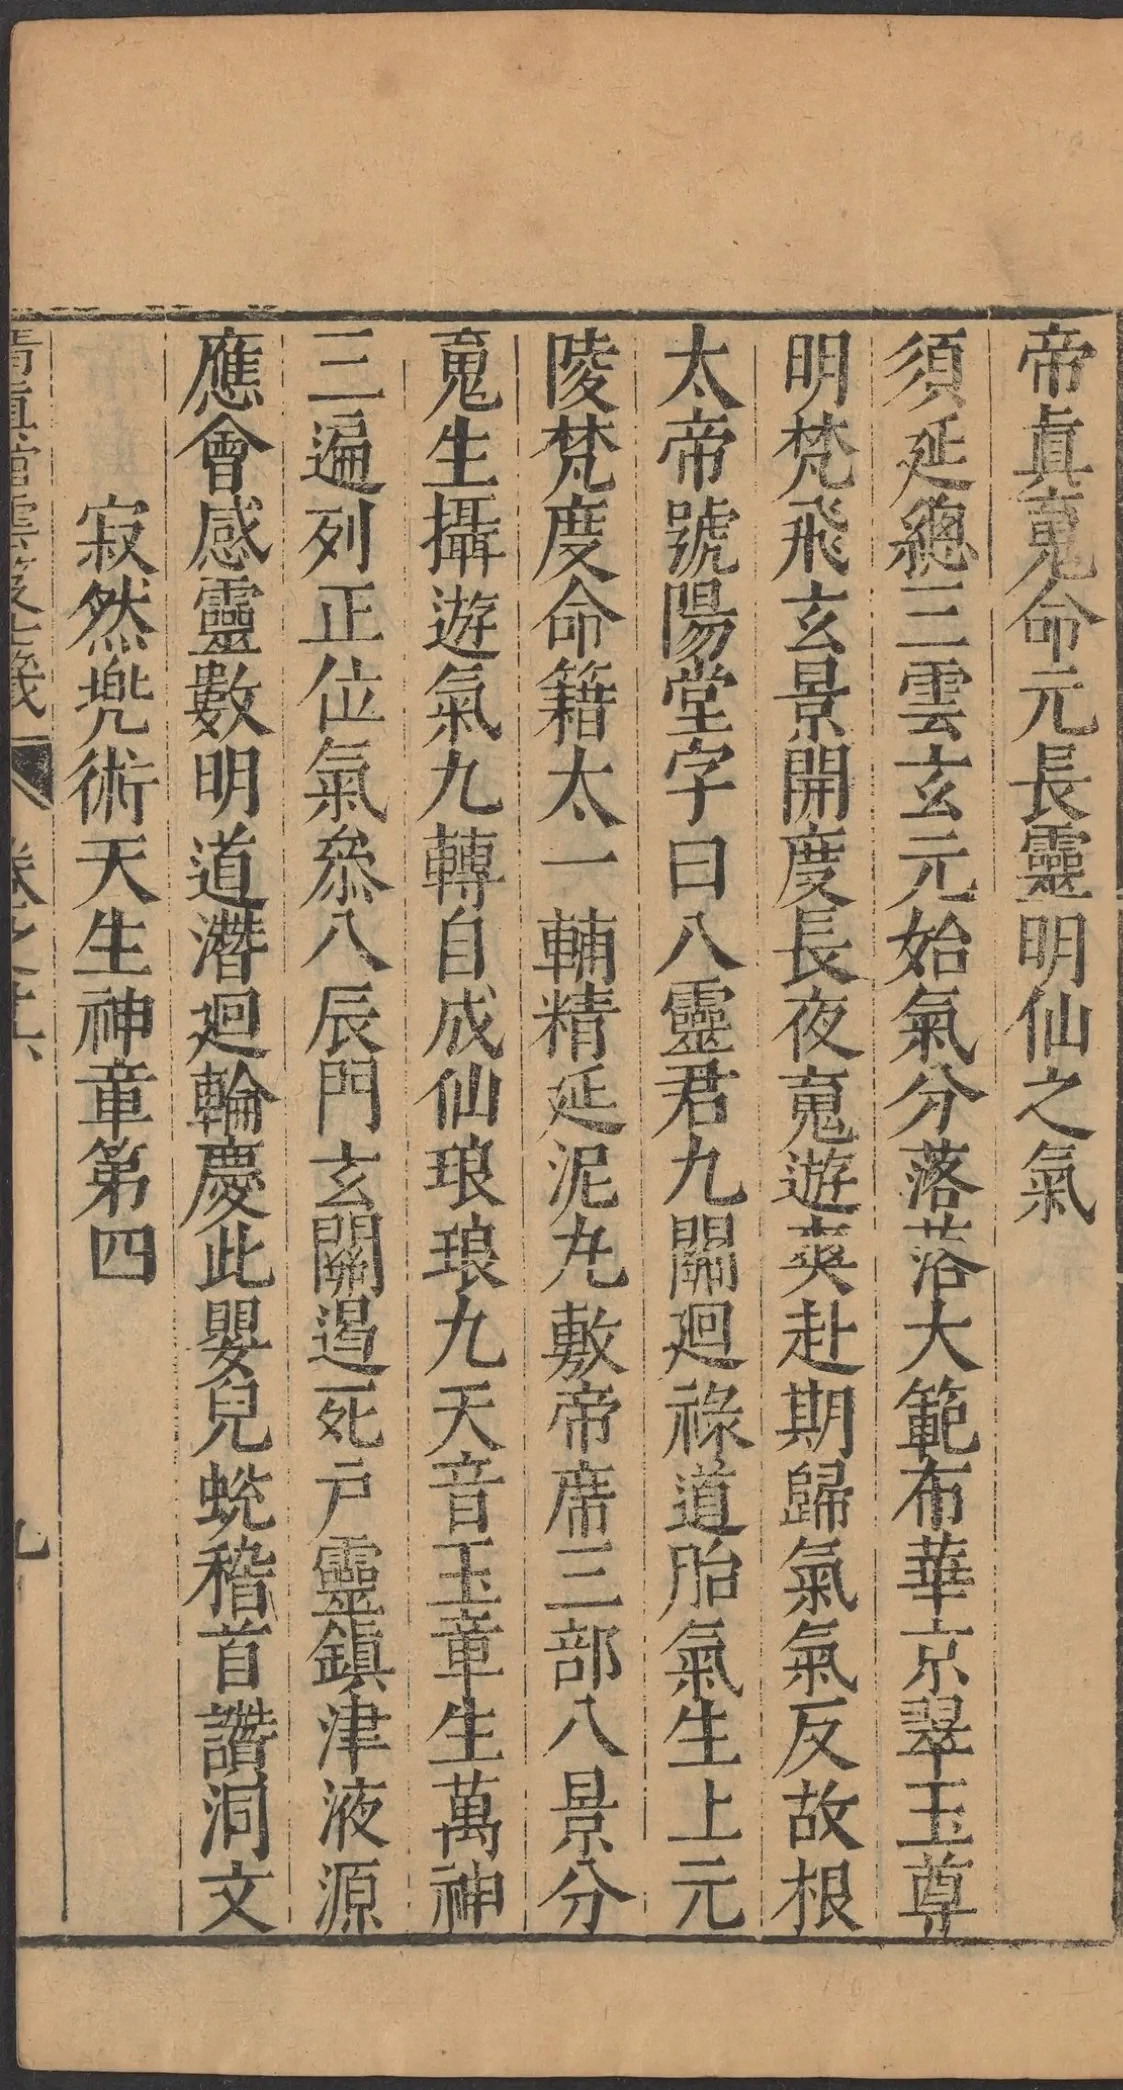 帝眞䰟命元長靈明仙之氣
須延總三雲玄元始氣分落落大範布華京翠玉尊
明梵飛玄景開度長夜䰟遊爽赴期歸氣氣反故根
太帝號陽堂字曰八靈君九關廻祿道胎氣生上元
陵梵度命籍太一輔精延泥丸敷帝席三部八景分
䰟生攝遊氣九轉自成仙琅琅九天音玉章生萬神
三遍列正位氣叅八辰門玄關遏死戸靈鎮津液源
應會感靈數明道潛廻輪慶此嬰兒蛻稽首讚洞文
寂然兠術天生神章第四
清眞舘雲笈七籖 卷之十六 九